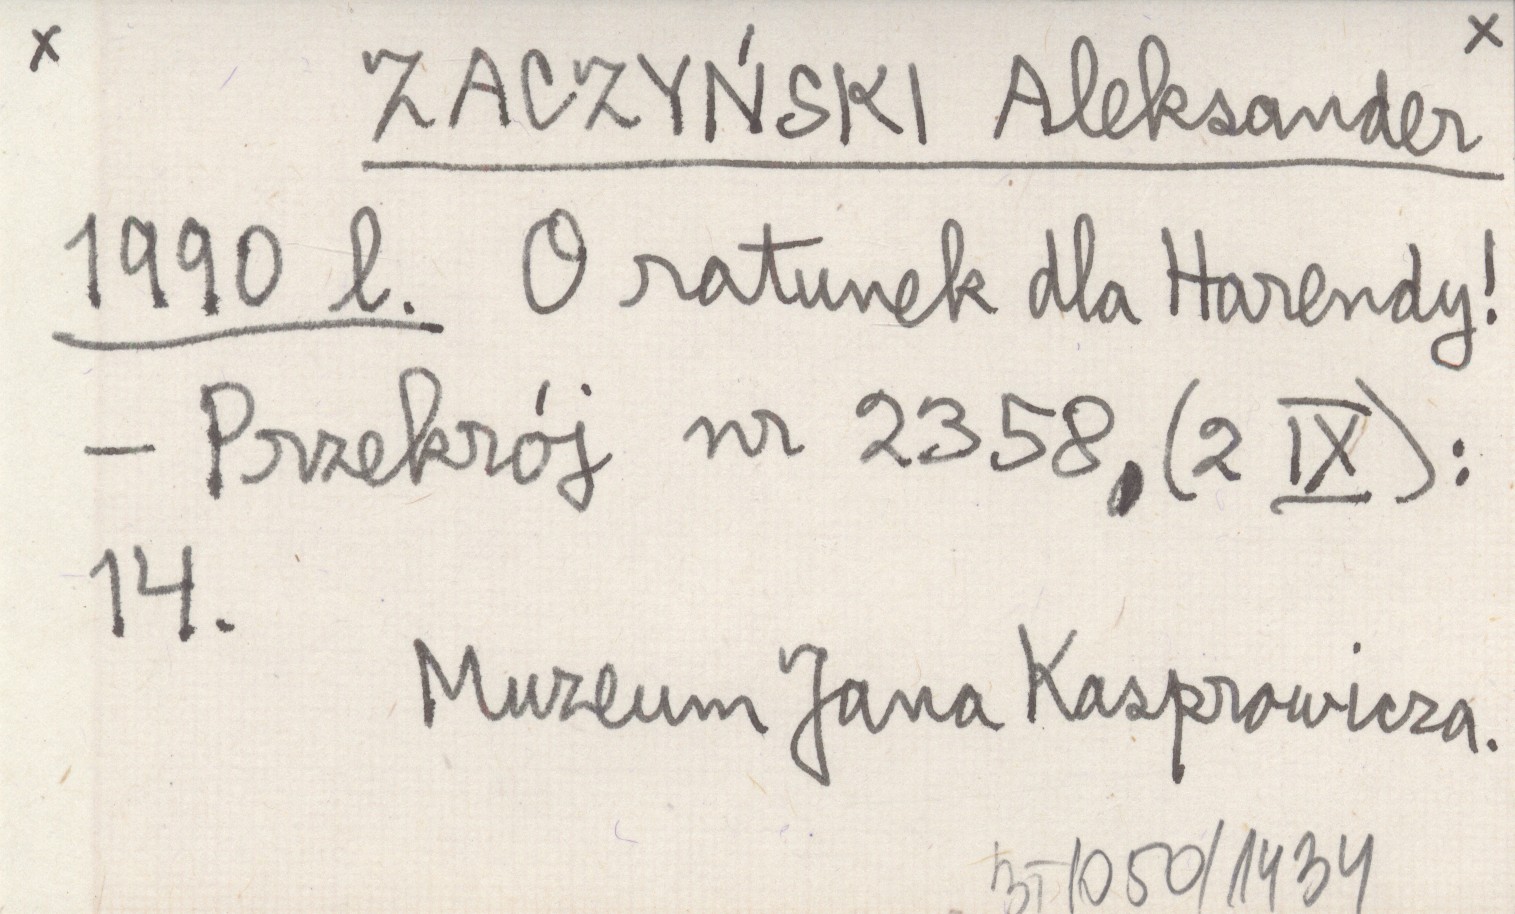 x x
ZACZYŃSKI Aleksander
1990 l. O ratunek dla Harendy!
– Przekrój nr 2358, (2 IX):
14.
Muzeum Jana Kasprowicza.
BT/050/1434